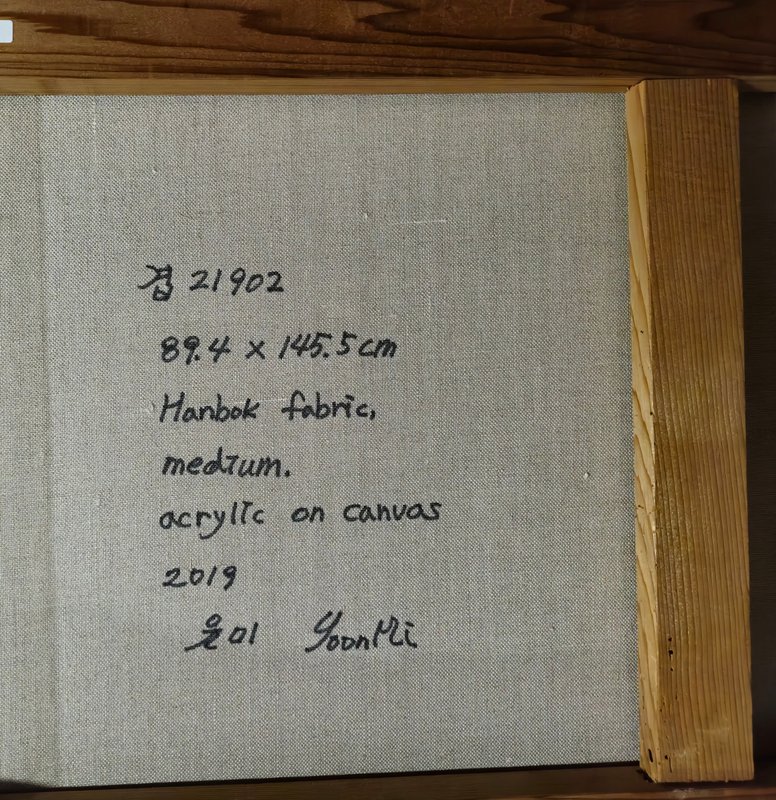 겹 21902
89.4 x 145.5cm
Hanbok fabric,
medium.
acrylic on canvas
2019
윤미 YoonMi